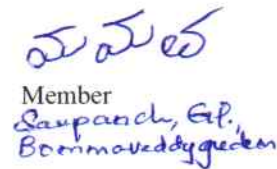 మమత
Member
Sarpanch, G.P.,
Bommareddygudem